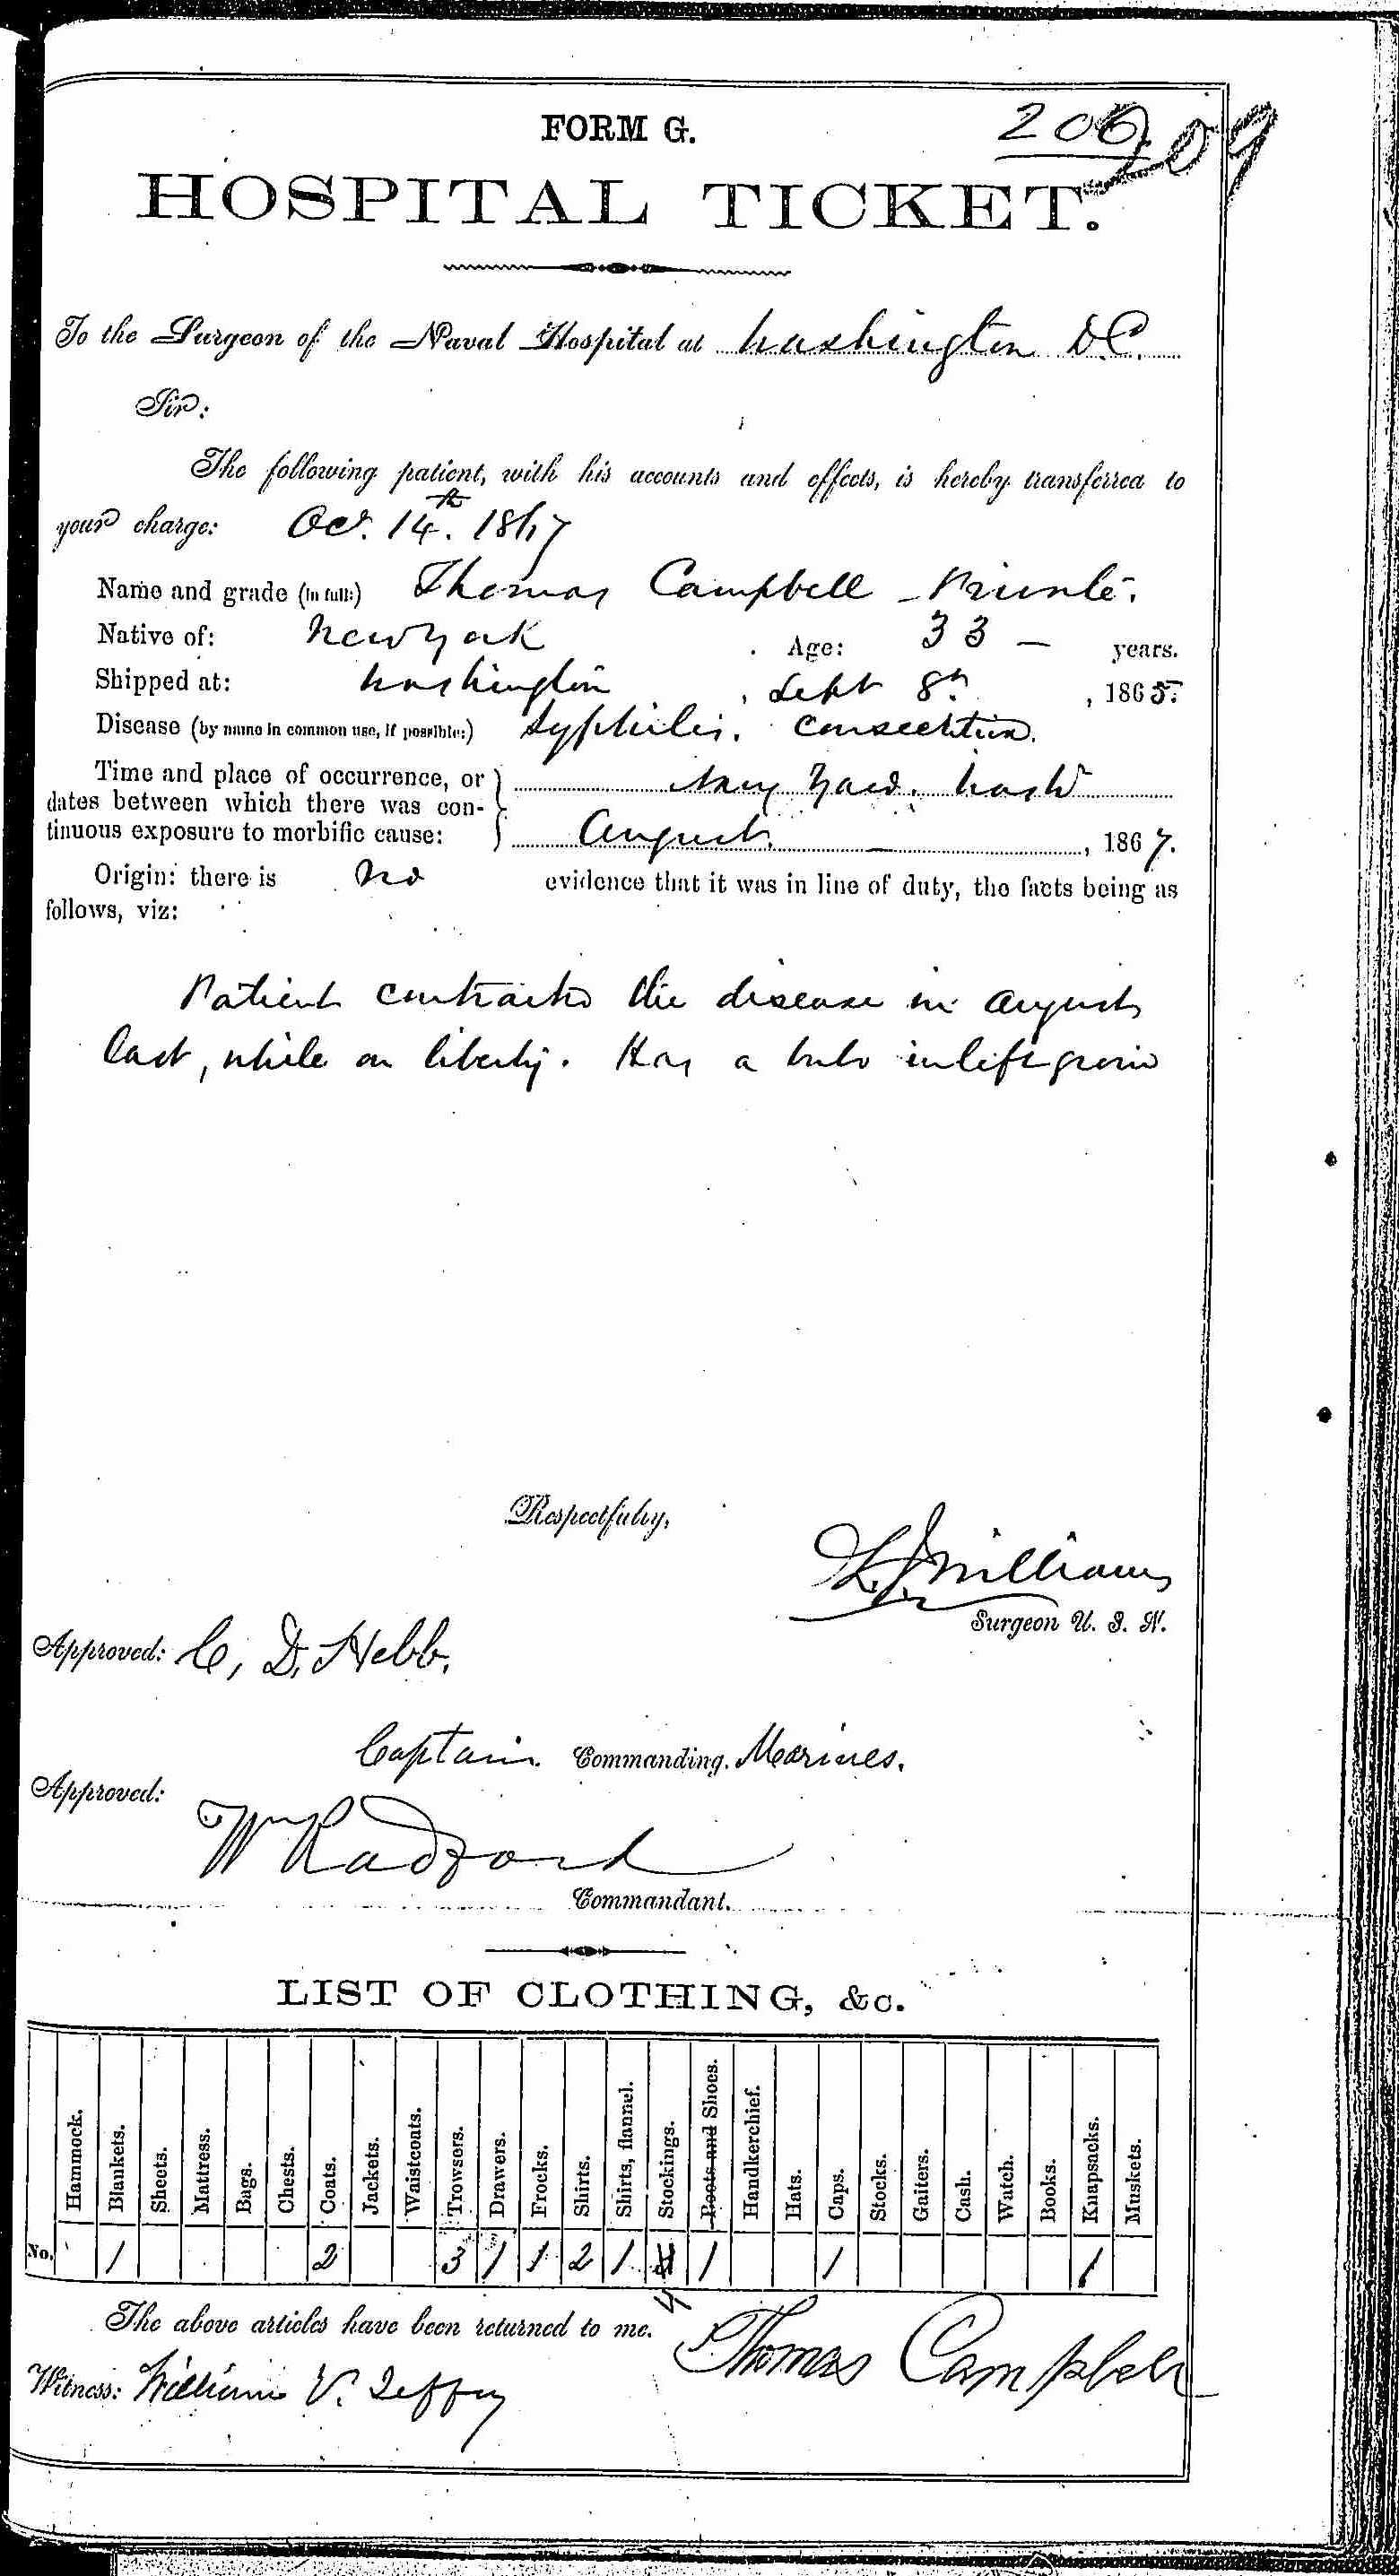 FORM G.
206
209
HOSPITAL TICKET.
To the Surgeon of the Naval Hospital at Washington D.C.
Sir:
The following patient, with his accounts and effects, is hereby transferred to
your charge: Oct. 14th. 1867
Name and grade (in full:) Thomas Campbell - Private.
Native of: New York . Age: 33 — years.
Shipped at: Washington , Sept 8th. , 1865.
Disease (by name in common use, if possible:) Syphilis. Consecutiva.
Time and place of occurrence, or Navy Yard. Wash
dates between which there was con-
tinuous exposure to morbific cause: August. — , 1867.
Origin: there is no evidence that it was in line of duty, the facts being as
follows, viz:
Patient contracted the disease in August
last, while on liberty. Has a bubo in left groin
Respectfully,
Williams
Surgeon U. S. N.
Approved: C, D. Hebb.
Captain Commanding. Marines.
Approved:
Wm Radford
Commandant.
LIST OF CLOTHING, &c.
Hammock. Blankets. Sheets. Mattress. Bags. Chests. Coats. Jackets. Waistcoats. Trowsers. Drawers. Frocks. Shirts. Shirts, flannel. Stockings. Boots and Shoes. Handkerchief. Hats. Caps. Stocks. Gaiters. Cash. Watch. Books. Knapsacks. Muskets.
No. 1 2 3 1 1 2 1 1 1 1
4
The above articles have been returned to me. Thomas Campbell
Witness: William V.